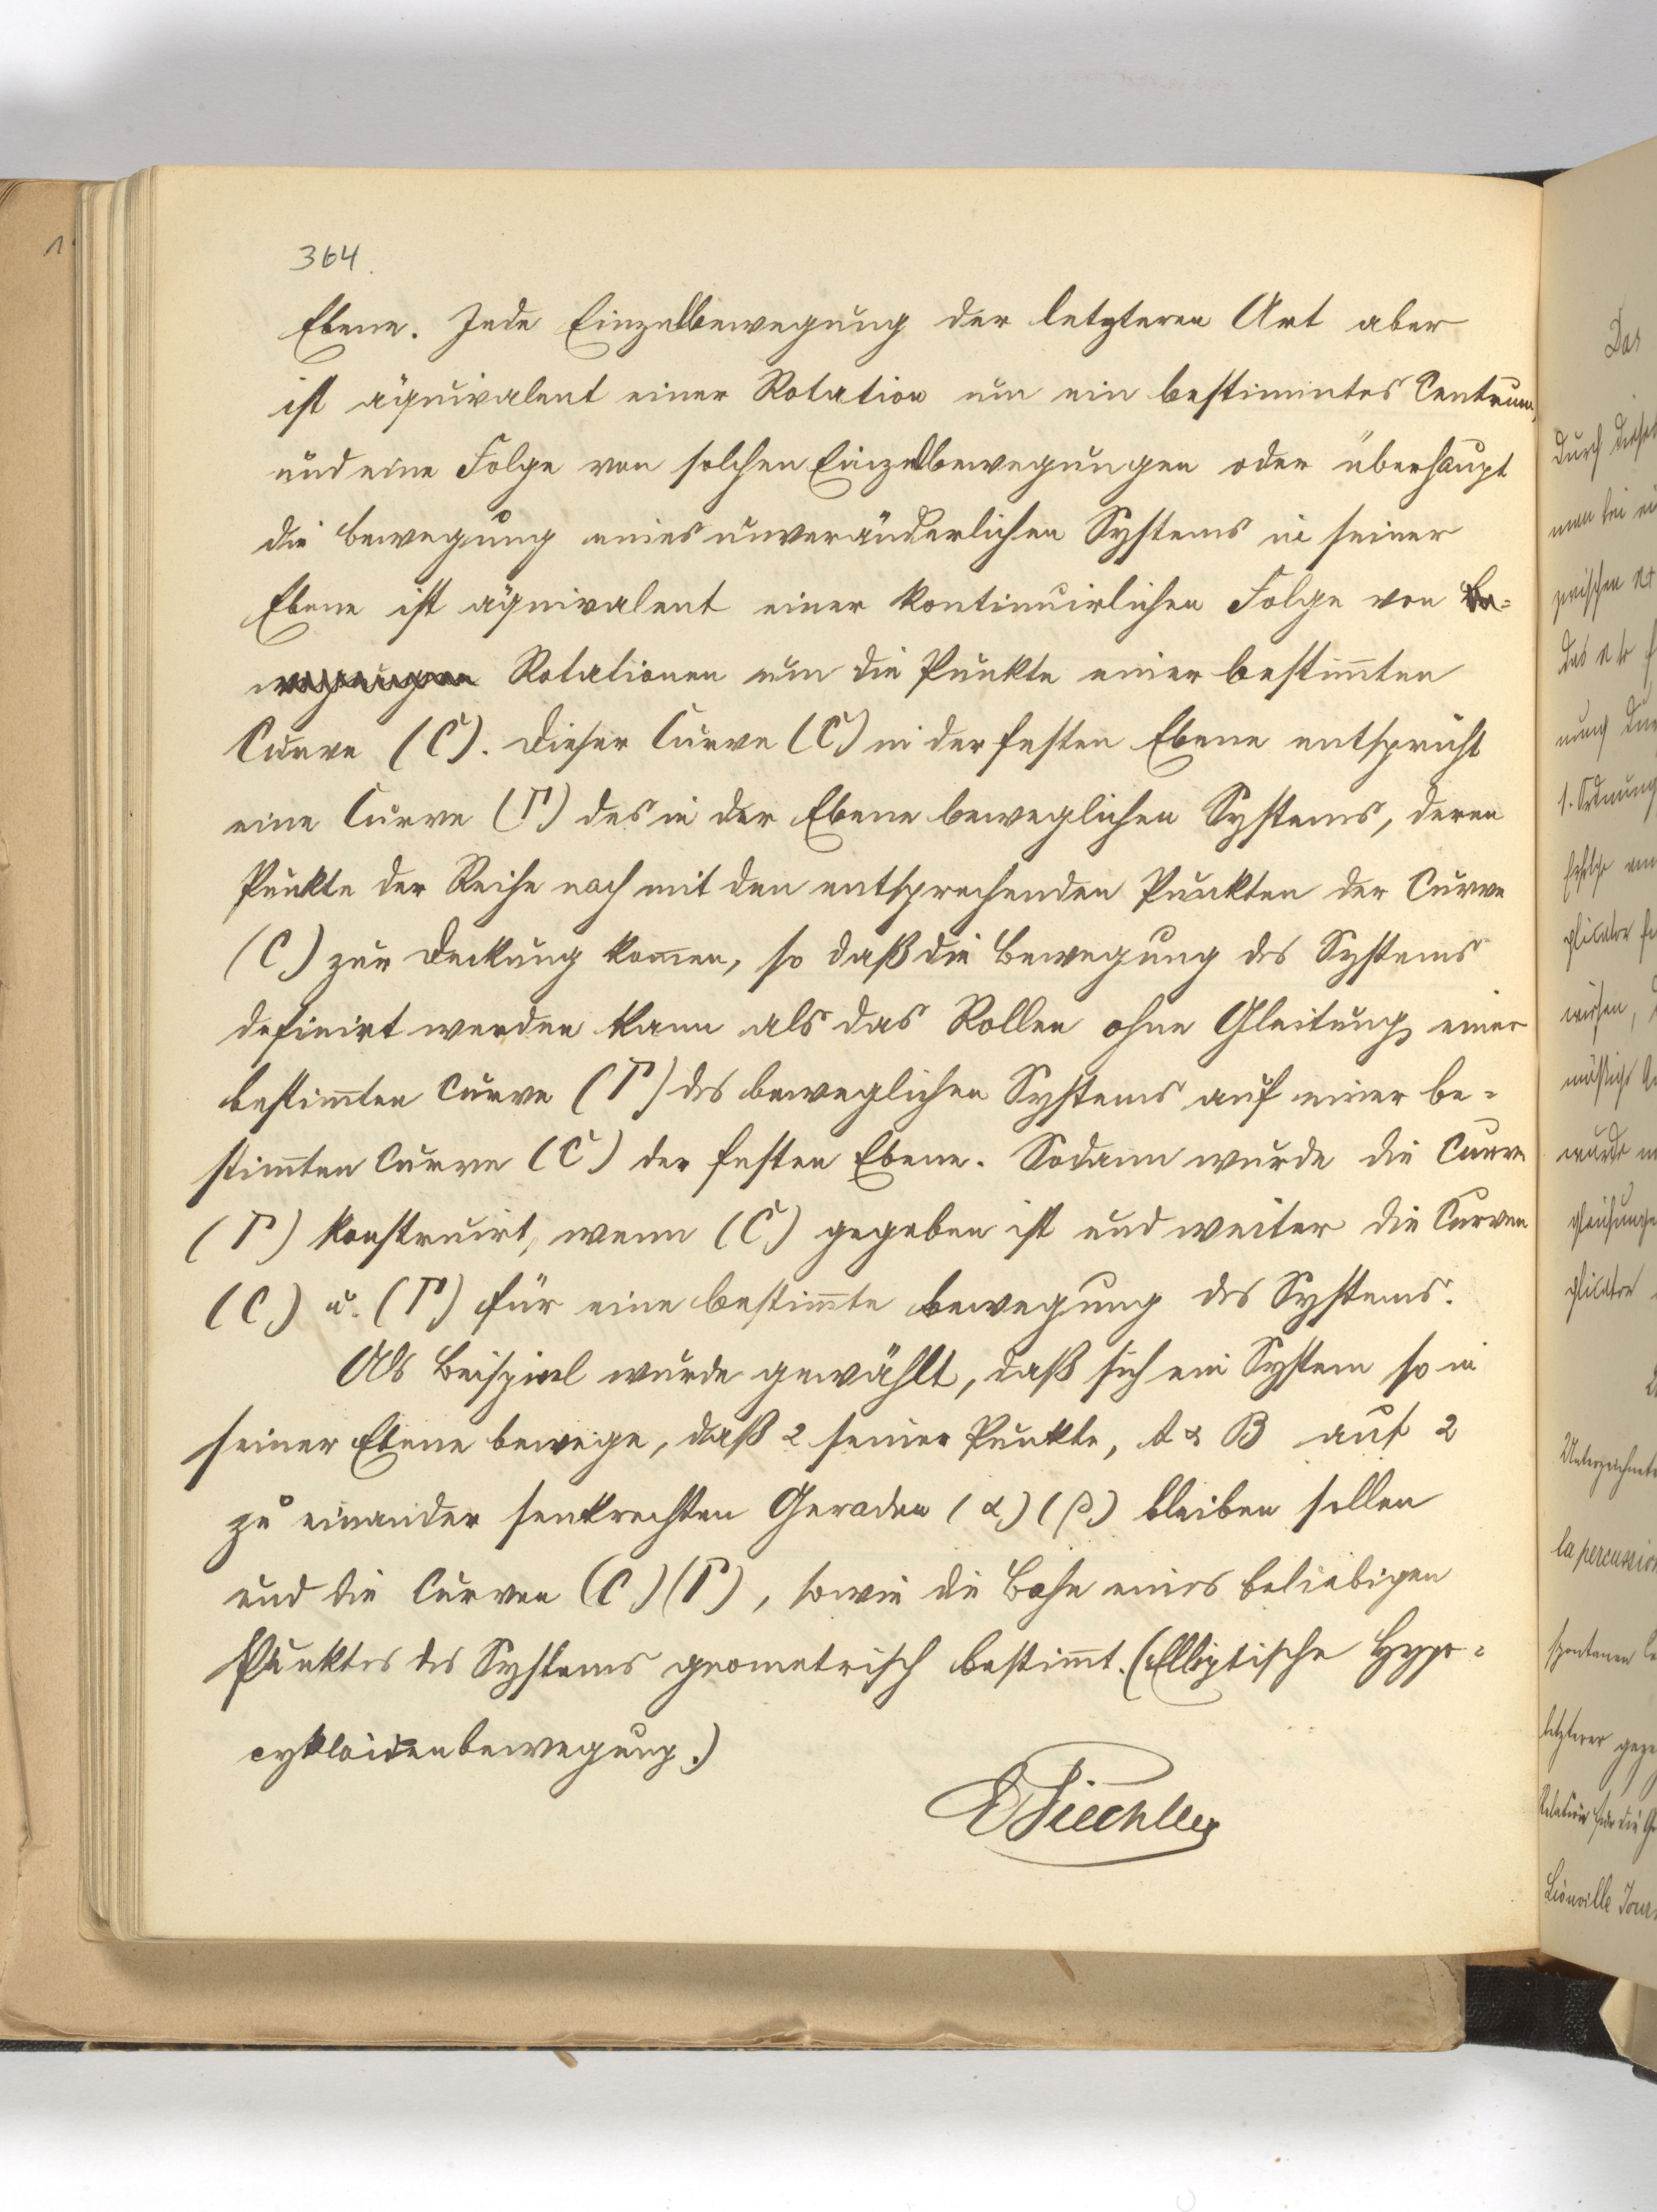 364.
Ebene. Jede Einzelbewegung der letzteren Art aber
ist äquivalent einer Rotation um ein bestimmtes Centrum,
und eine Folge von solchen Einzelbewegungen oder überhaupt
die Bewegung eines unveränderlichen Systems in seiner
Ebene ist äquivalent einer kontinuirlichen Folge von Be-
wegungen Rotationen um die Punkte einer bestim̅ten
Curve (C). Dieser Curve (C) in der festen Ebene entspricht
eine Curve (Γ) des in der Ebene beweglichen Systems, deren
Punkte der Reihe nach mit den entsprechenden Punkten der Curve
(C) zur Deckung kom̅en, so daß die Bewegung des Systems
definirt werden kann als das Rollen ohne Gleitung einer
bestim̅ten Curve (Γ) des beweglichen Systems auf einer be-
stim̅ten Curve (C) der festen Ebene. Sodann wurde die Curve
(Γ) konstruirt, wenn (C) gegeben ist und weiter die Curven
(C) u. (Γ) für eine bestim̅te Bewegung des Systems.
Als Beispiel wurde gewählt, daß sich ein System so in
seiner Ebene bewege, daß 2 seiner Punkte, A & B auf 2
zu einander senkrechten Geraden (α) (β) bleiben sollen
und die Curven (C) (Γ), sowie die Bahn eines beliebigen
Punktes des Systems geometrisch bestim̅t. (Elliptische Hypo-
cykloidenbewegung.)
Das
durch diese
man bei ei
zwischen
das
nung
1. Ordnung
wurde
la percussion
letzterer
Liouville Jour